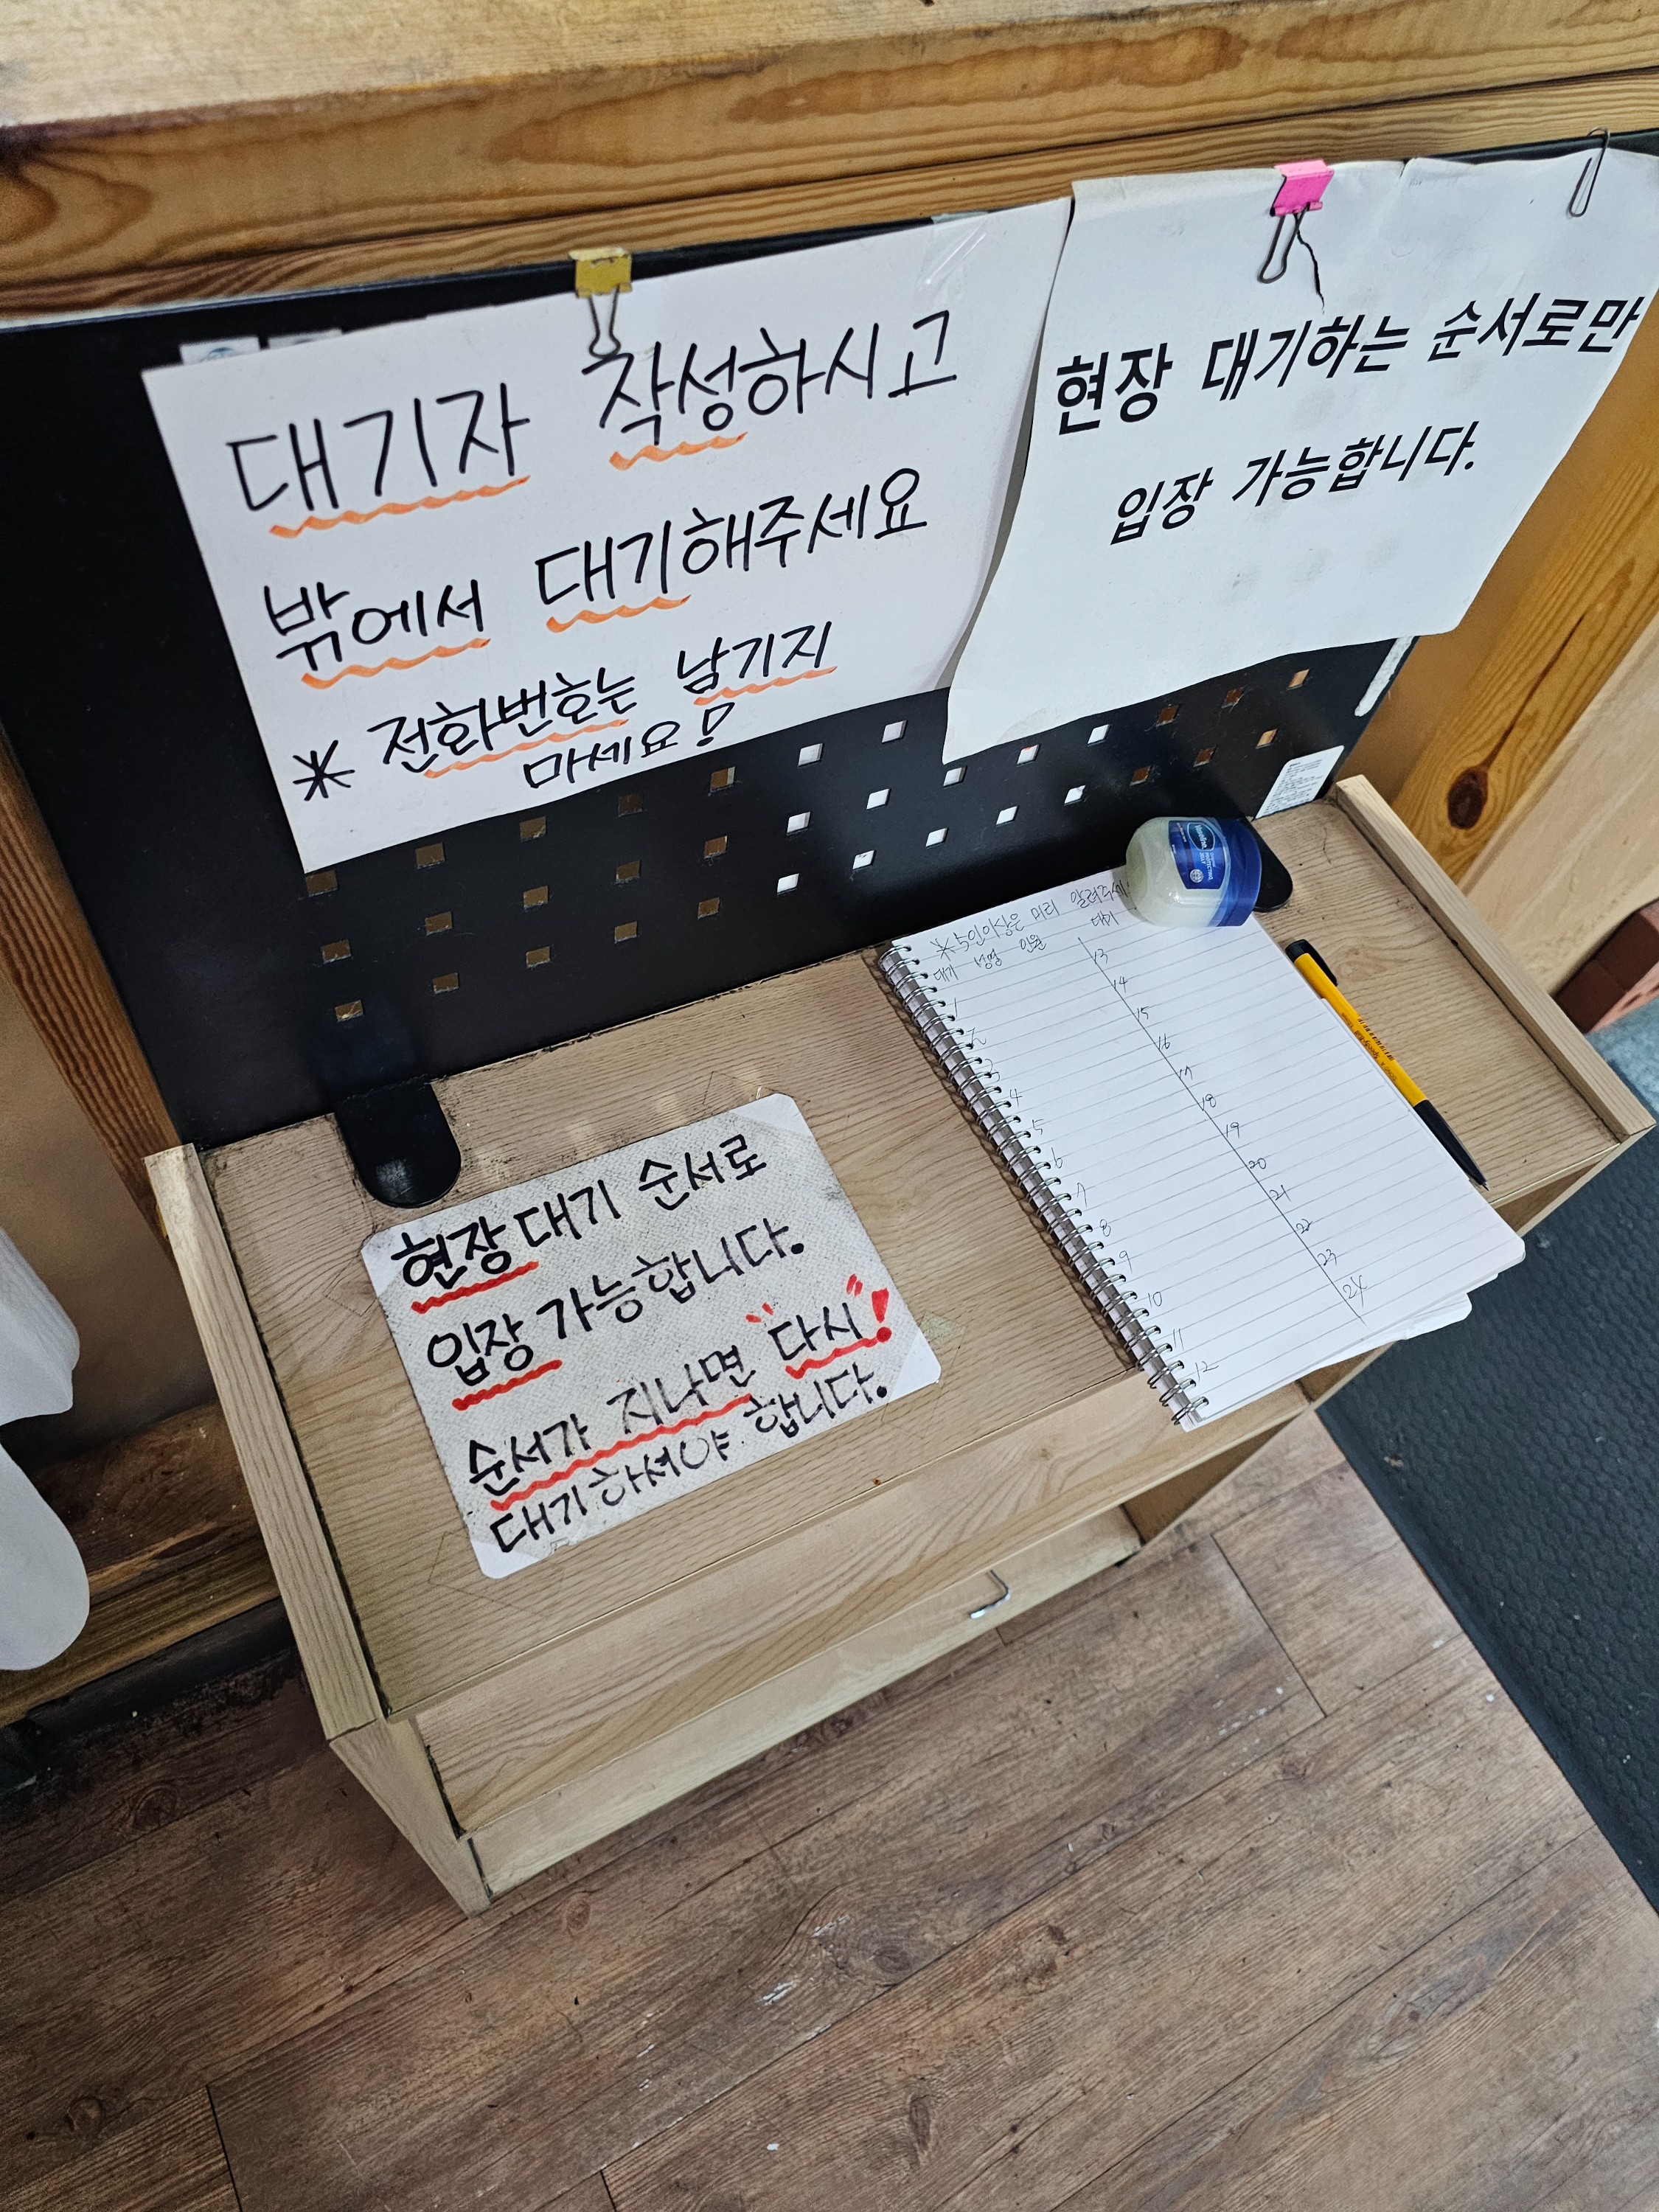 대기자 작성하시고
밖에서 대기해주세요
* 전화번호는 남기지
마세요!
현장 대기하는 순서로만
입장 가능합니다.
현장대기 순서로
입장 가능합니다.
순서가 지나면 "다시"!
대기하셔야 합니다.
Vaseline
* 5인이상은 미리 알려주세
대기 성명 인원 대기
1 13
2 14
3 15
4 16
5 17
6 18
7 19
8 20
9 21
10 22
11 23
12 24